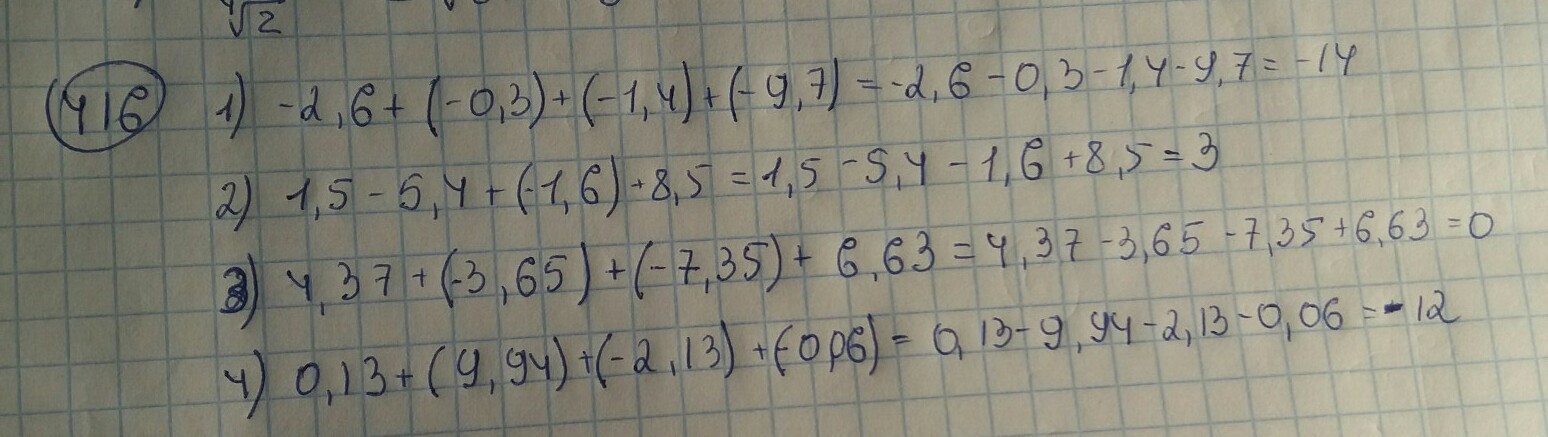 √2
416
1) -2,6+(-0,3)+(-1,4)+(-9,7)=-2,6-0,3-1,4-9,7=-14
2) 1,5-5,4+(-1,6)+8,5=1,5-5,4-1,6+8,5=3
3) 4,37+(-3,65)+(-7,35)+6,63=4,37-3,65-7,35+6,63=0
4) 0,13+(9,94)+(-2,13)+(-0,06)=0,13-9,94-2,13-0,06=-12